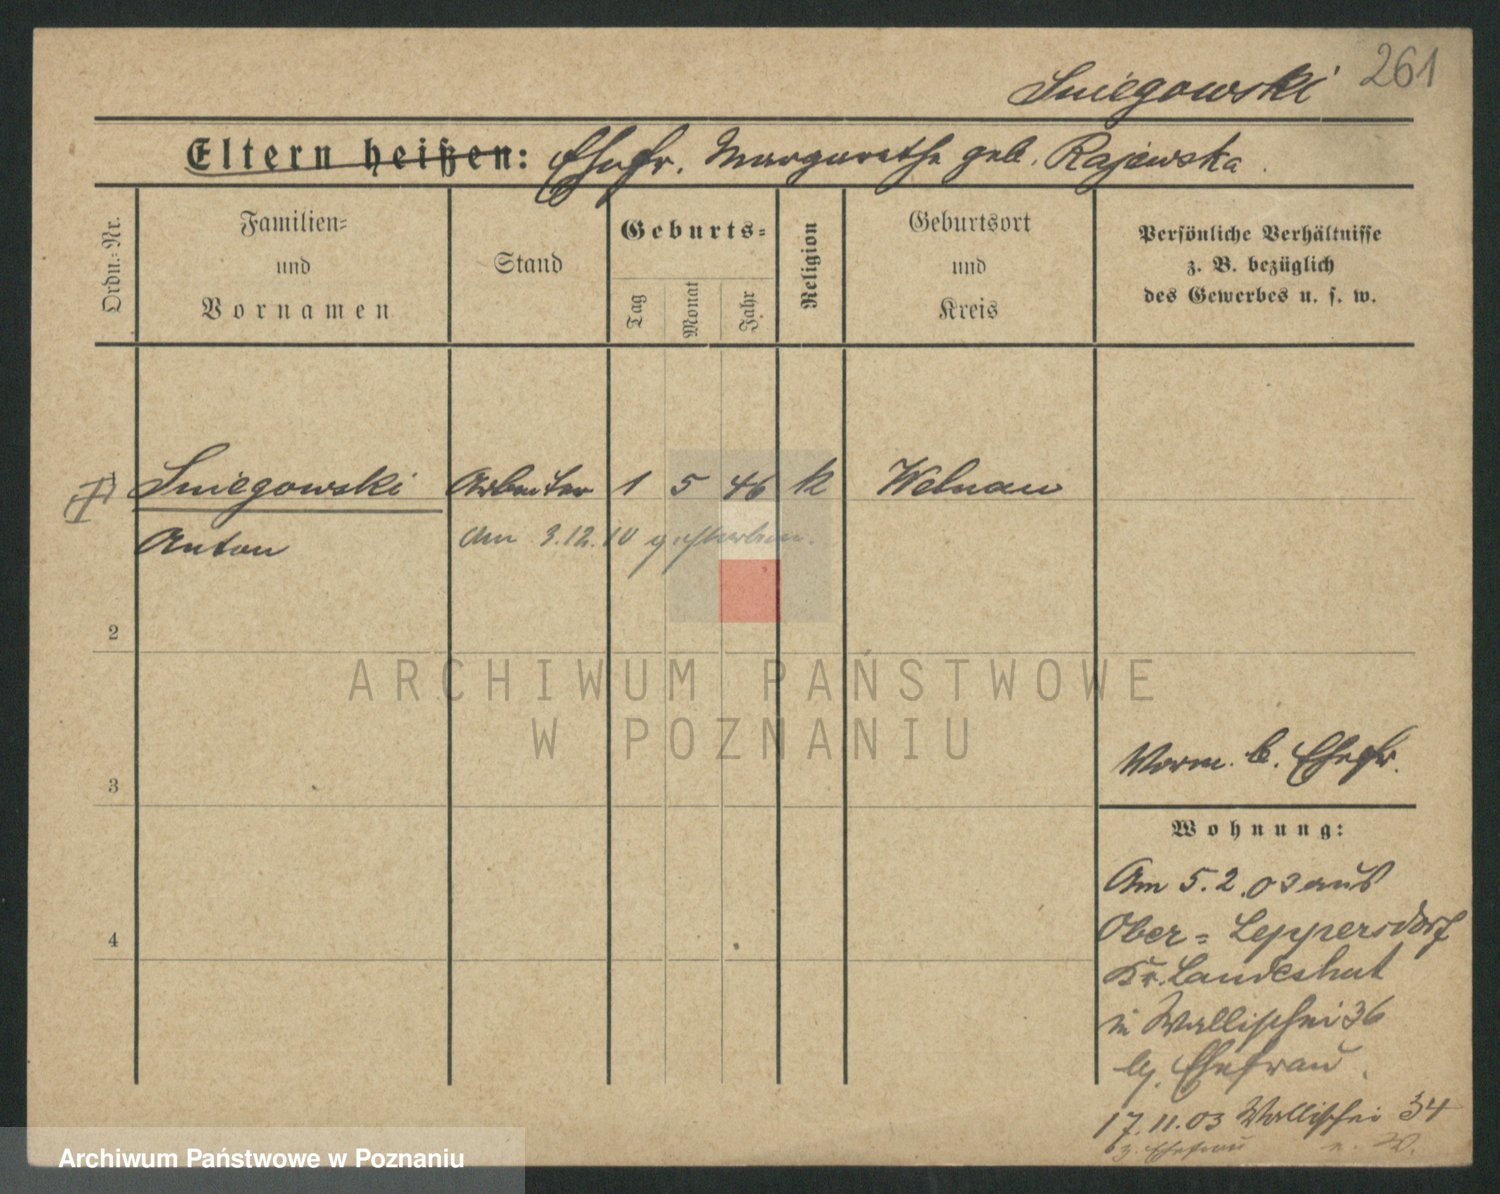 261
Sniegowski
Eltern heißen: Ehefr. Margarethe geb. Rajewska.
Ordn.-Nr.
Familien-
und
Vornamen
Stand
Geburts-
Tag
Monat
Jahr
Religion
Geburtsort
und
Kreis
Persönliche Verhältnisse
z. B. bezüglich
des Gewerbes u. s. w.
1 Sniegowski Arbeiter 1 5 46 k Welnau
Anton am 3.12.10 gestorben.
2
3
4
ARCHIWUM PAŃSTWOWE
W POZNANIU
Worm. b. Ehefr.
Wohnung:
Am 5.2.03 aus
Ober-Leppersdorf
Kr. Landeshut
in Wallischei 36
b/. Ehefrau.
17.11.03 Wallischei 34
z. Ehefrau
Archiwum Państwowe w Poznaniu